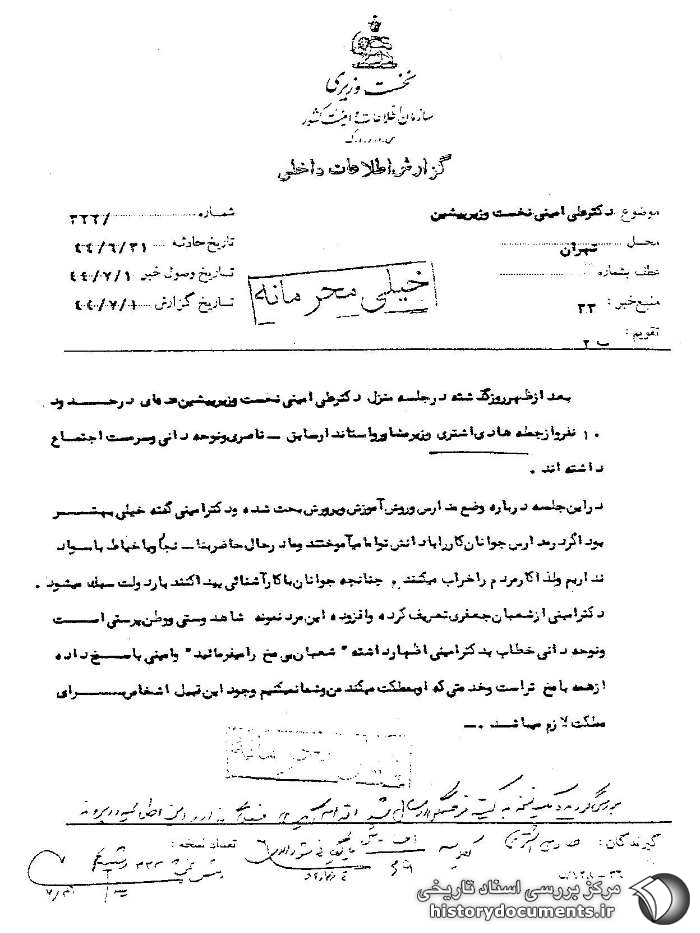 نخست وزیری
سازمان اطلاعات و امنیت کشور
س.ا.و.ا.ک
گزارش اطلاعات داخلی
موضوع دکتر علی امینی نخست وزیر پیشین
شماره /۳۲۲
محل تهران
تاریخ حادثه ۴۴/۶/۳۱
عطف بشماره
تاریخ وصول خبر ۴۴۰/۷/۱
منبع خبر : ۲۳
تاریخ گزارش ۴۰۴۰/۷/۱
تقویم : ب ۲
خیلی محرمانه
بعد از ظهر روز گذشته در جلسه منزل دکتر علی امینی نخست وزیر پیشین عده‌ای در حدود
۱۰ نفر و از جمله هادی اشتری وزیر مشاور و استاندار سابق ـ ناصری و نوحه دانی و سرمست اجتماع
داشته اند .
در این جلسه درباره وضع مدارس و روش آموزش و پرورش بحث شده و دکتر امینی گفته خیلی بهتر
بود اگر در مدارس جوانان کار را با دانش توأما میآموختند و ما در حال حاضر بنا ـ نجار و یا خیاط با سواد
نداریم و لذا کار مردم را خراب میکنند . چنانچه جوانان با کار آشنائی پیدا کنند بار دولت سبک میشود .
دکتر امینی از شعبان جعفری تعریف کرده و افزوده این مرد نمونه شاهدوستی و وطن پرستی است
و نوحه دانی خطاب بدکتر امینی اظهار داشته " شعبان بی مخ را میفرمائید " و امینی پاسخ داده
از همه با مخ تر است و خدمتی که او بمملکت میکند من و شما نمیکنیم وجود این قبیل اشخاص برای
مملکت لازم میباشد .ـ
خیلی محرمانه
گیرندگان :
تعداد نسخه :
۳۶ ـ
مرکز بررسی اسناد تاریخی
historydocuments.ir